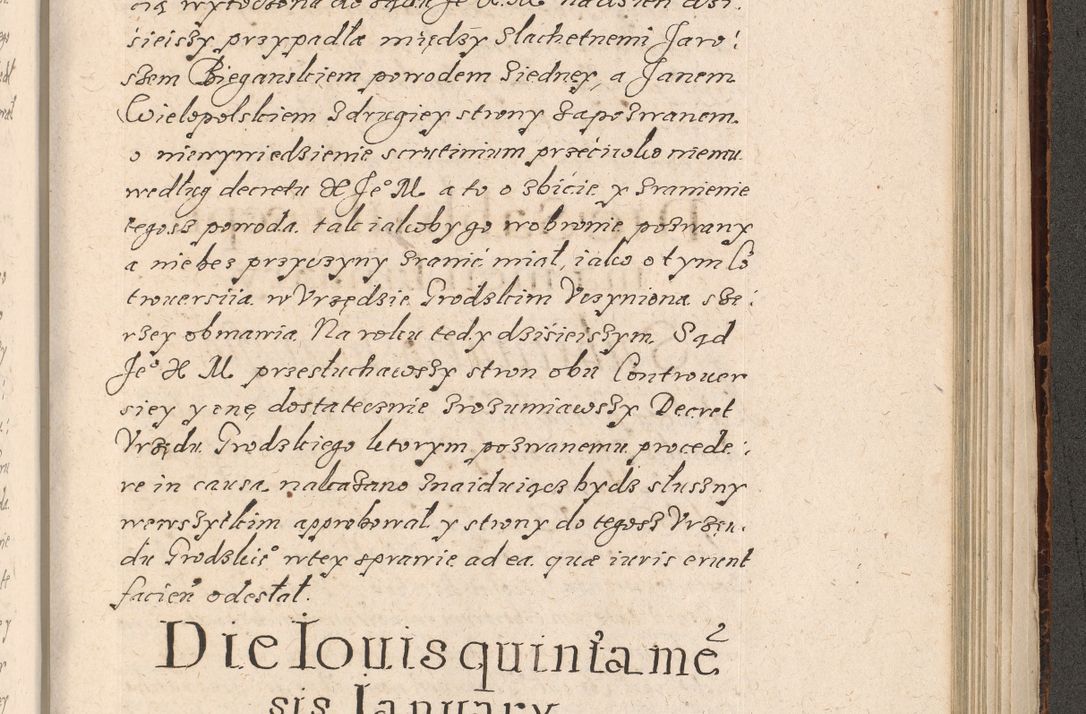 cią wytoczona do sądu Je° X. M na dzień dzi:
sieiszy przypadła między Slachetnemi Jaro:
szem Bieganskiem powodem ziedney, a Janem
Wielopolskiem z drugiey strony zapozwanem
o niewywiedzienie scrutinium przeciwko niemu
według decretu X Je° M a to o zbicie y zranienie
tegosz powoda tak iakoby go wobronie pozwany
a niebez przyczyny zranić miał, iako o tym Cō
trouersiia w Vrzędzie Grodzkim Vczyniona sze:
rzey obmawia Na roku tedy dzisieiszym Sąd
Je° X M przesłuchawszy stron obu Controuer
siey y onę dostatecznie zrozumiawszy Decret
Vrzędu Grodzkiego ktorym pozwanemu procede:
re in causa nakazano znaiduiącz bydz słuszny
wewszytkim approbował y strony do tegosz Vrzęn:
du Grodzkie° wtey sprawie ad ea quæ iuris erunt
facien̄ odesłał.
Die Iouis quinta mē
sis Ianuary